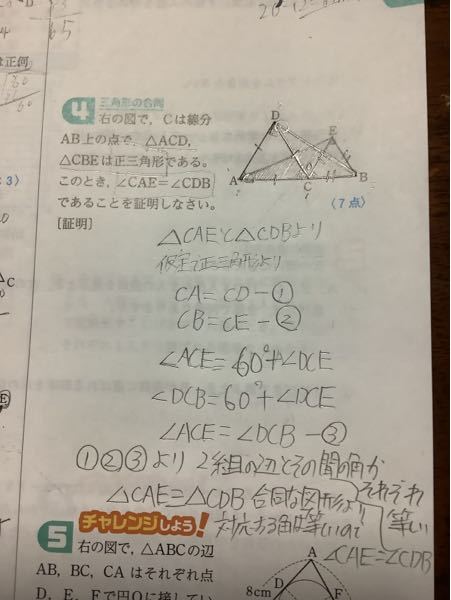 D
65
は正何
60
4 三角形の合同
右の図で，Cは線分
AB上の点で，△ACD，
△CBEは正三角形である。
このとき，∠CAE＝∠CDB
であることを証明しなさい。
〈7点〉
D
E
A
C
B
[証明]
△CAEと△CDBより
仮定で正三角形より
CA=CD－①
CB=CE－②
∠ACE=60°+∠DCE
∠DCB=60°+∠DCE
∠ACE=∠DCB－③
①②③より 2組の辺とその間の角が
それぞれ
等しい
△CAE≡△CDB 合同な図形より
対応する角は等しいので
∠CAE=∠CDB
5 チャレンジしよう!
右の図で，△ABCの辺
AB，BC，CAはそれぞれ点
D，E，Fで円Oに接してい
A
D
F
8cm